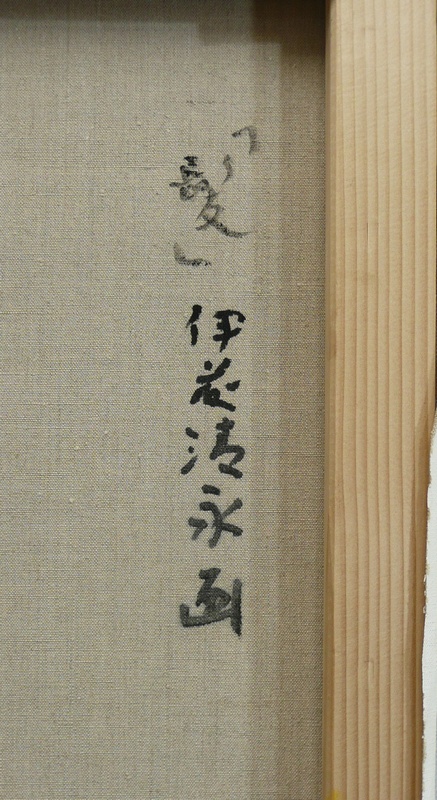 「髪」 伊藤清永画